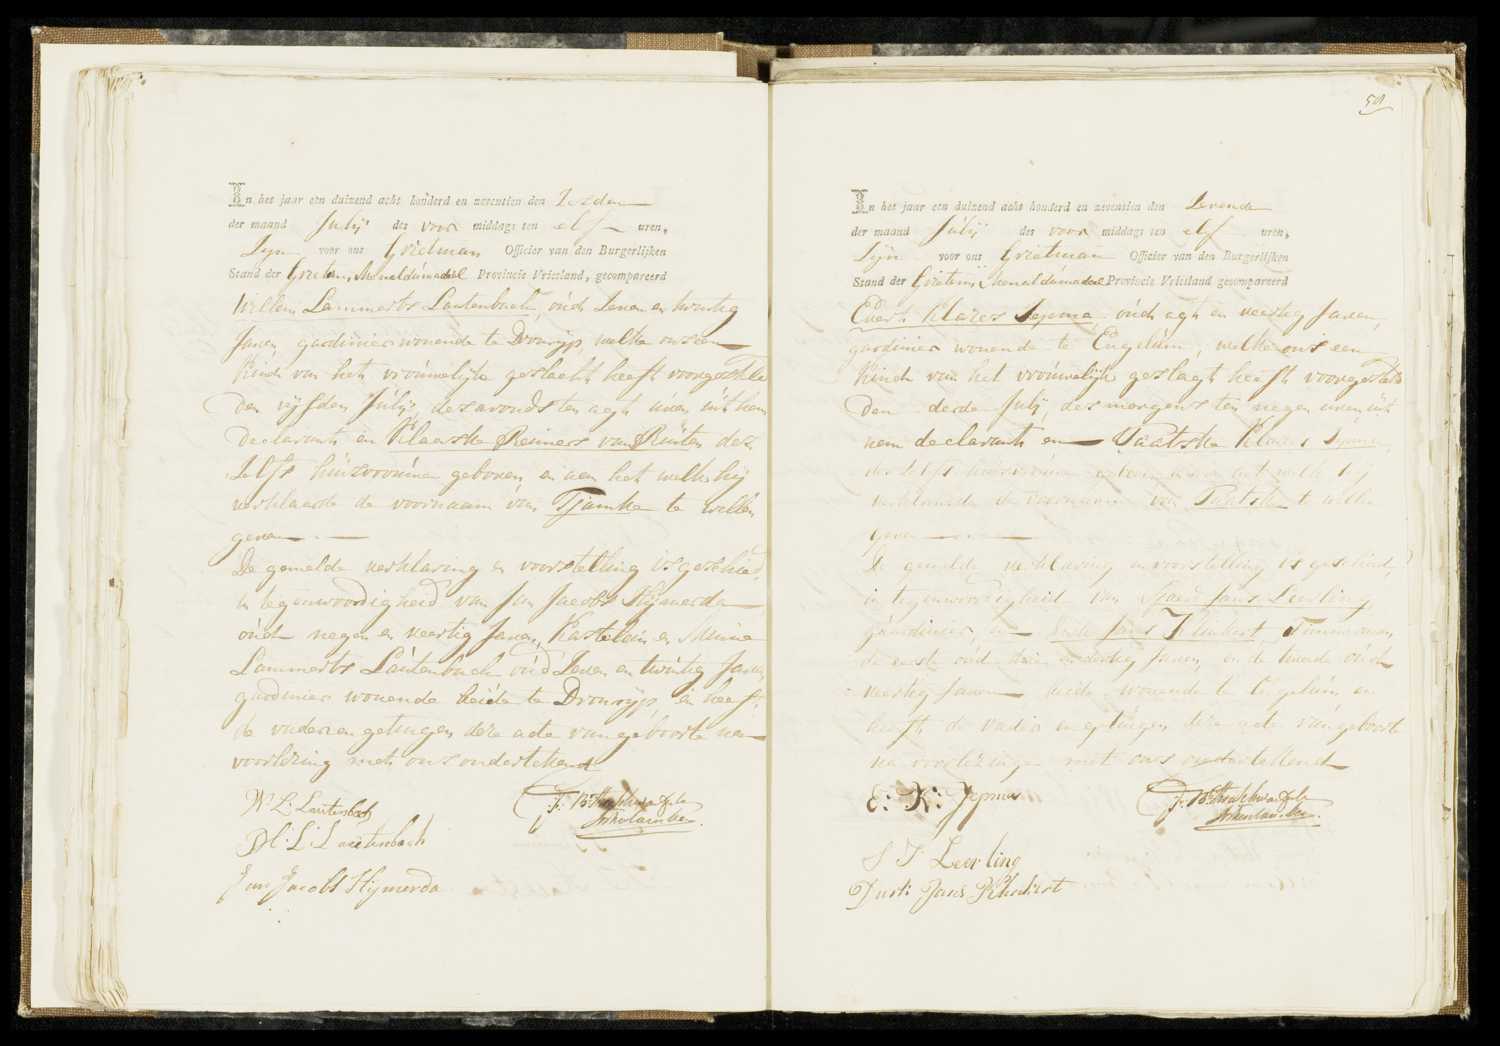 In het jaar een duizend acht honderd en zeventien den Zesden
der maand Julij des voor middags ten elf uren,
Zijn voor ons Grietman Officier van den Burgerlijken
Stand der Grieteny Menaldumadeel Provincie Vriesland, gecompareerd
Willem Lammerts Lautenbach, oud Zeven en twintig
Jaren gardinier wonende te Dronrijp, welke ons een
Kind van het vrouwelijke geslacht heeft voorgesteld
den vyfden Julij, des avonds ten agt uren uit hem
declarant en Klaaske Reiners van Ruiten des
zelfs huisvrouw geboren, en aan het welk hij
verklaarde de voornaam van Tjamke te willen
geven
De gemelde verklaring en voorstelling is geschied,
in tegenwoordigheid van Jan Jacobs Hijmerda
oud negen en veertig Jaren, Kastelein en Meine
Lammerts Lautenbach oud Zeven en twintig Jaren
gardinier wonende beide te Dronrijp, en heeft
de vader en getuigen deze acte van geboorte na
voorlezing met ons ondertekend
W: L: Lautenbach
M: L: Lautenbach
Jan Jacobs Hijmerda
59
In het jaar een duizend acht honderd en zeventien den Zevende
der maand Julij des voor middags ten elf uren,
Zijn voor ons Grietman Officier van den Burgerlijken
Stand der Grieteny Menaldumadeel Provincie Vriesland gecompareerd
Evert Klazes Jepma oud agt en veertig Jaren,
gardinier wonende te Engelum, welke ons een
Kind van het vrouwelijk geslagt heeft voorgesteld
den derde July, des morgens ten negen uren uit
hem declarant en Klazes
des zelfs huisvrouw geboren en aan het welk hij
verklaarde de voornaam van te willen
geven
De gemelde verklaring en voorstelling is geschied,
in tegenwoordigheid van Sjoerd Jans Leerling
gardinier, en Jans Klinkert, Timmerman,
de eerste oud drie en dertig Jaren, en de tweede oud
veertig Jaren beide wonende te Engelum en
heeft de vader en getuigen deze acte van geboorte
na voorlezinge met ons ondertekend
E: K: Jepma
S J Leerling
Jans Klinkert